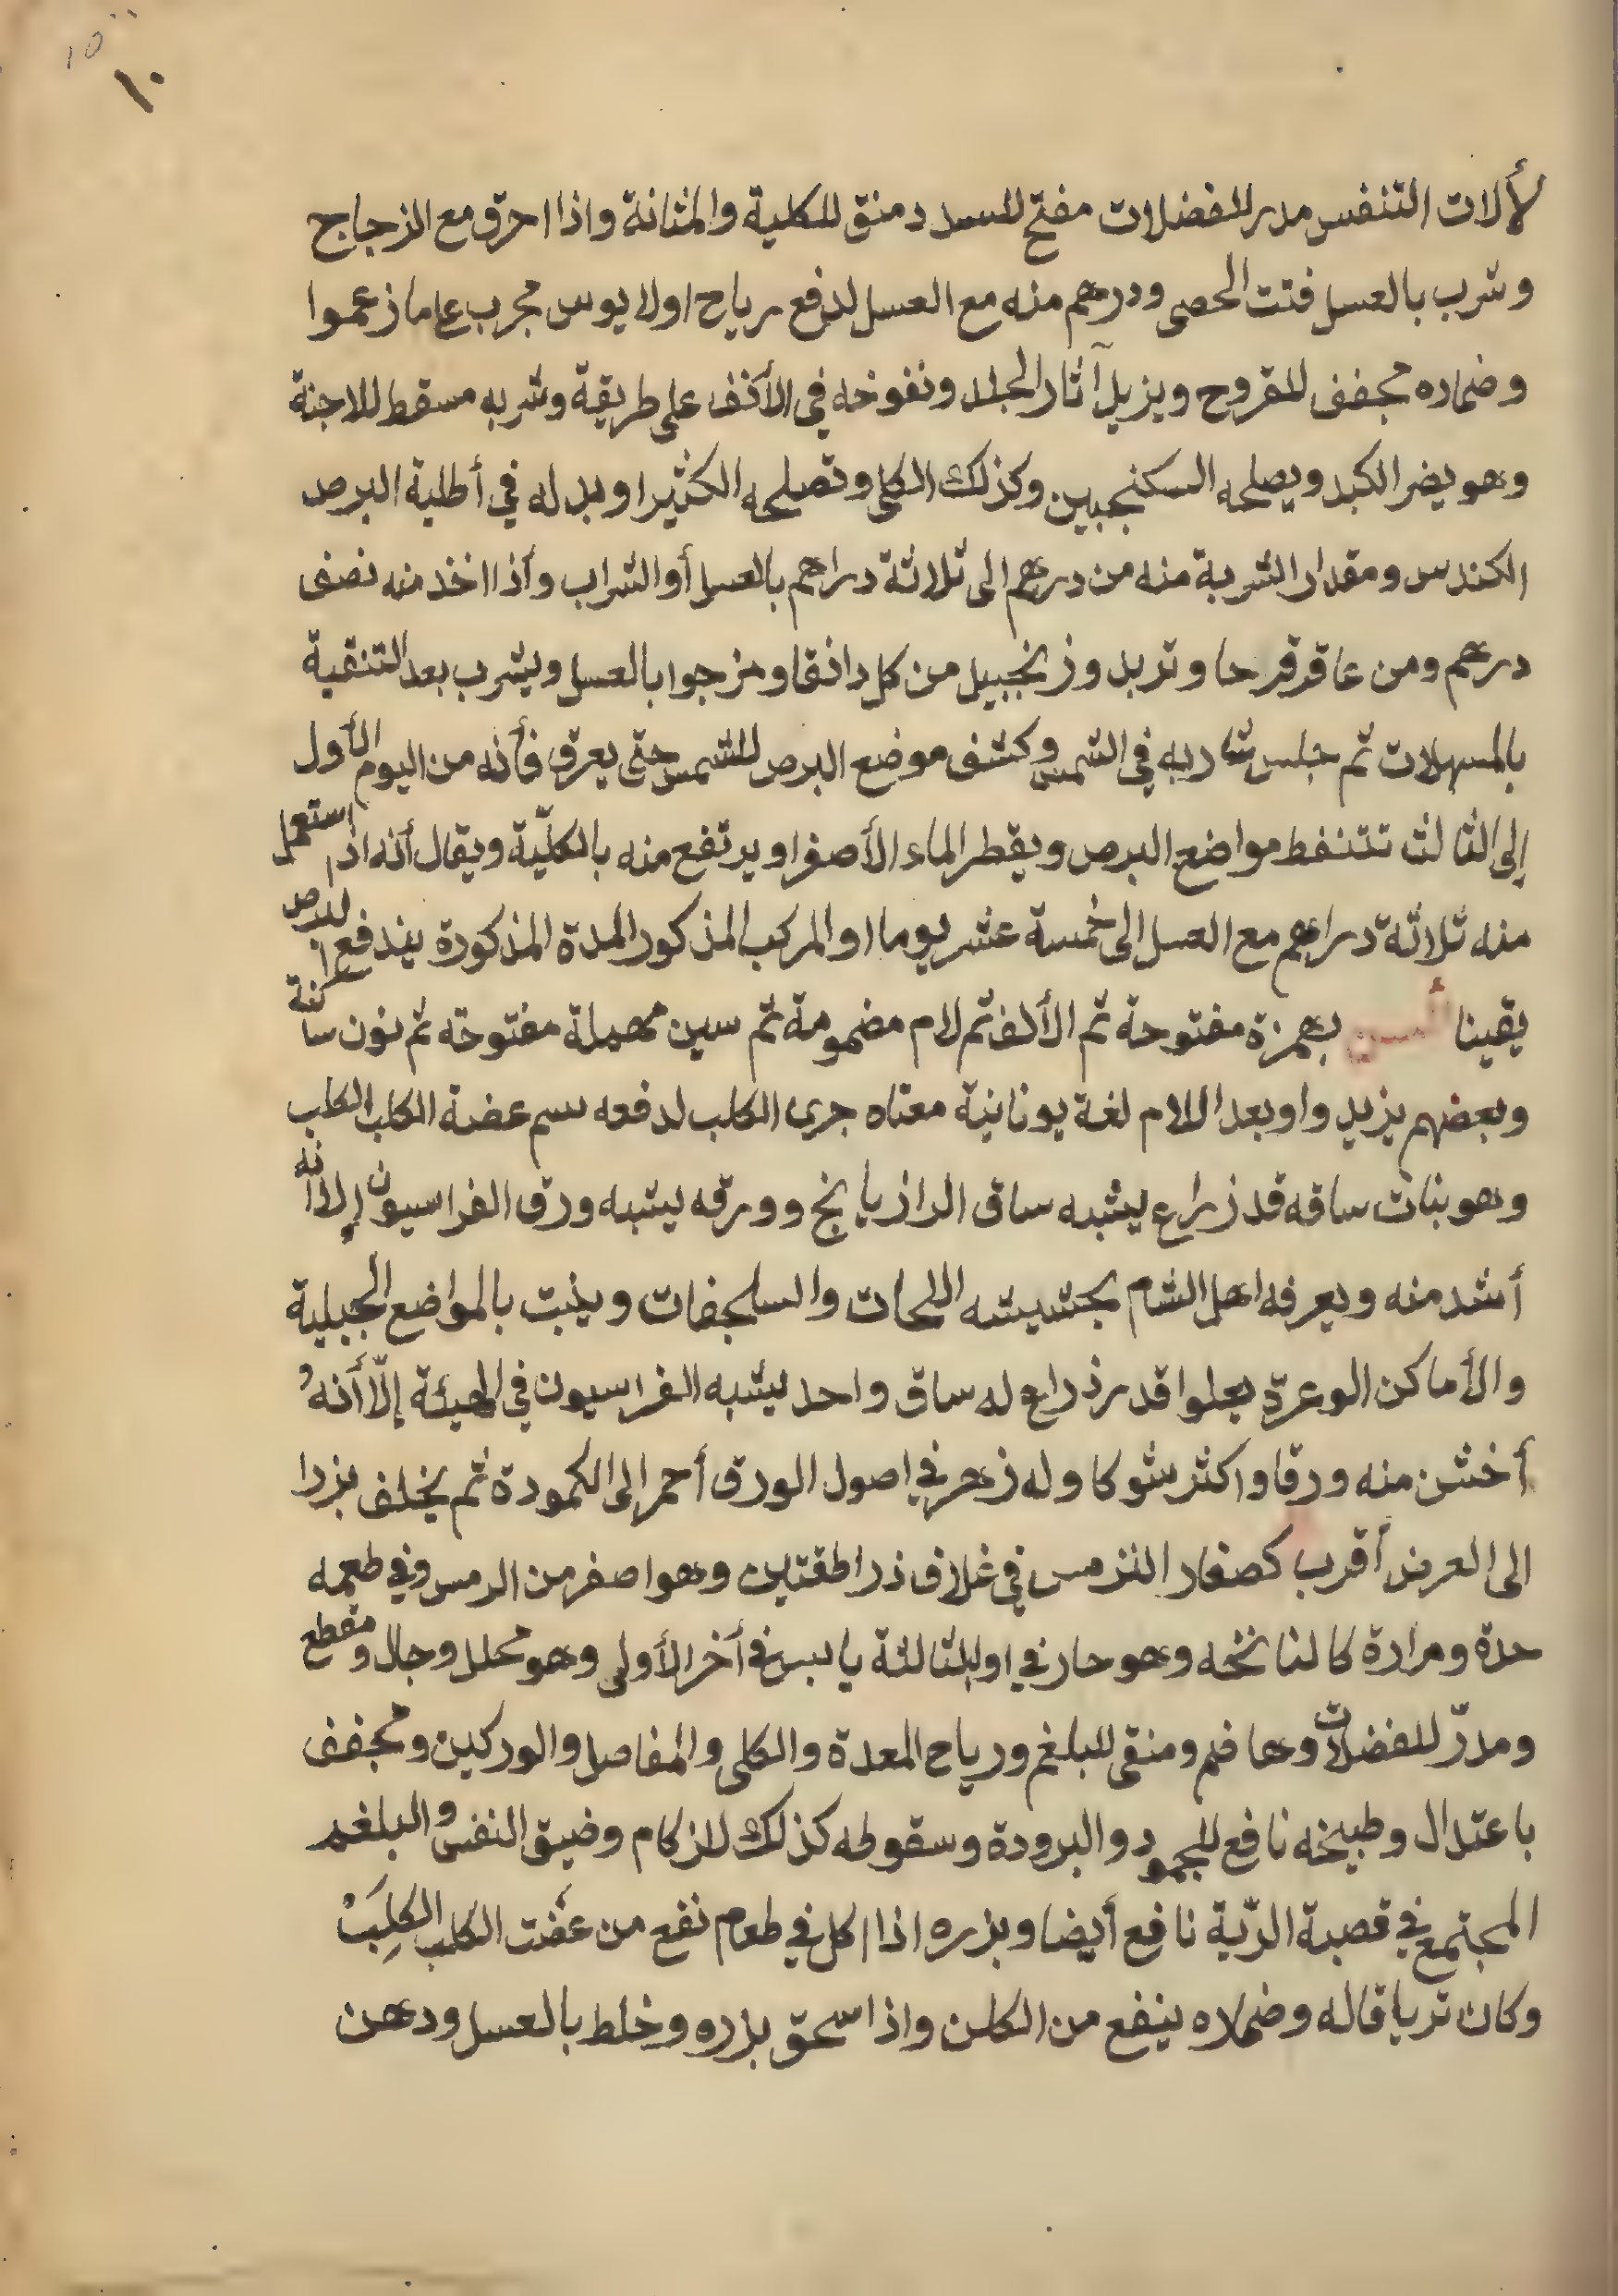 ١٥
١٠
لألات التنفس مدر للفضلات مفتح للسدد منق للكلية والمثانة واذا احرق مع الزجاج
وشرب بالعسل فتت الحصى ودرهم منه مع العسل لدفع رياح اولايوس مجرب على ما زعموا
وضماده مجفف للقروح ويزيل آثار الجلد ونفوخه في الأنف على طريقة وشربه مسقط للاجنة
وهو يضر الكبد ويصلحه السكنجبين وكذلك الكلى وتصلحه الكثيرا وبدله في أطلية البرص
الكندس ومقدار الشربة منه من درهم الى ثلاثة دراهم بالعسل أو الشراب وأذا اخذ منه نصف
درهم ومن عاقرقرحا وتربد وزنجبيل من كل دانقا ومزجوا بالعسل ويشرب بعد التنقية
بالمسهلات ثم جلس شاربه في الشمس وكشف موضع البرص للشمس حتى يعرق فأنه من اليوم الأول
إلى الثالث تتنفط مواضع البرص ويقطر الماء الأصفر او يرتفع منه بالكلّية ويقال أنه اذا استعمل
منه ثلاثة دراهم مع العسل الى خمسة عشر يوما او المركب المذكور المدة المذكورة يندفع البرص
يقينا ألسن بهمزة مفتوحة ثم الألف ثم لام مضمومة ثم سين مهملة مفتوحة ثم نون ساكنة
وبعضهم يزيد واو بعد اللام لغة يونانية معناه جرى الكلب لدفعه سم عضة الكلب الكلب
وهو بنات ساقه قد زراع يشبه ساق الرازيانج وورقه يشبه ورق الفراسيون إلا أنه
أشد منه ويعرفه اهل الشام بحشيشه اللحات والسلحفات وينبت بالمواضع الجبلية
والأماكن الوعرة يعلوا قدر ذراع له ساق واحد يشبه الفراسيون في الهيئة إلّا أنهُ
أخشن منه ورقا واكثر شوكا وله زهر في اصول الورق أحمر إلى الكمودة ثم يخلف بزرا
الى العرض أقرب كصغار الترمس في غلاف ذو اطقتين وهو اصفر من الرمس وفي طعمه
حدة ومرارة كالنانخه وهو حار في اول الثالثة يابس في أخر الأولى وهو محلل وجال ومقطع
ومدرّ للفضلات وهاضم ومنقى للبلغم ورياح المعدة والكلى والمفاصل والوركين ومجفف
باعتدال وطبيخه نافع للجمود والبرودة وسقوطه كذلك للزكام وضيق النفس والبلغم
المجتمع في قصبة الرّية نافع أيضا وبزره اذا اكل في طعام نفع من عضت الكلب الكلِبْ
وكان ترياقا له وضماده ينفع من الكلف واذا سحق بزره وخلط بالعسل ودهن